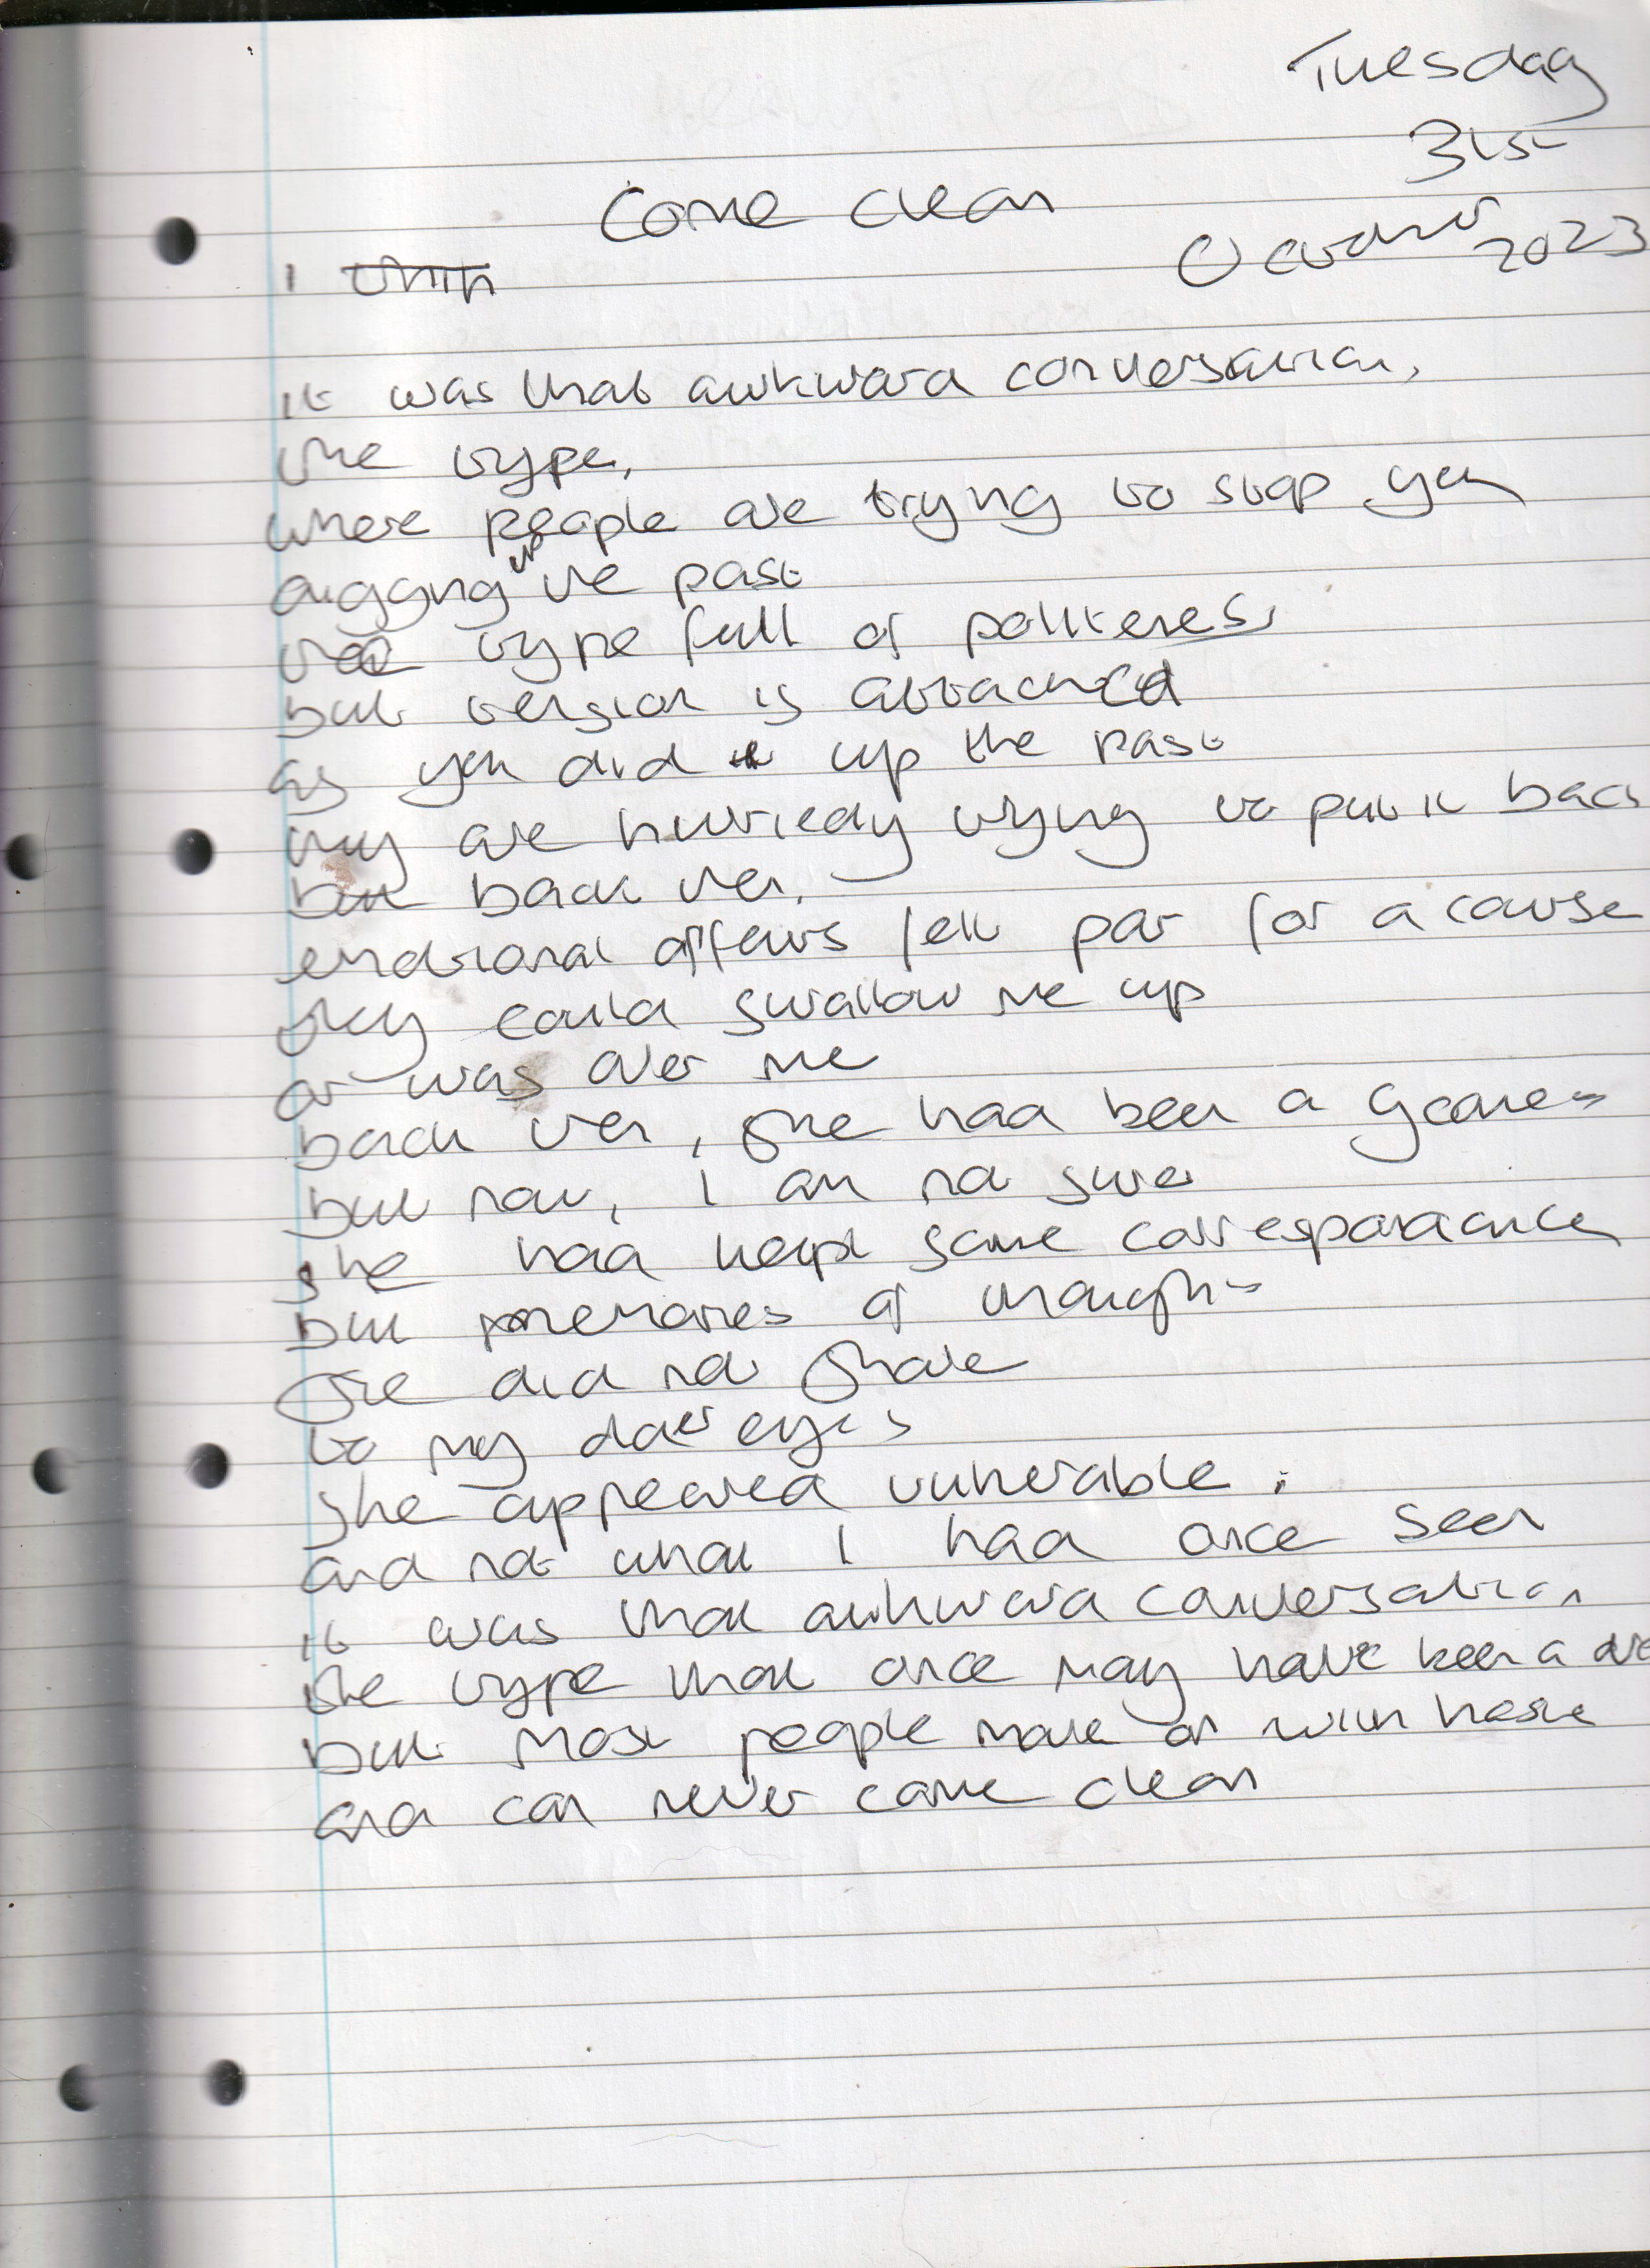 Tuesday
31st
Come clean
October 2023
I think
it was that awkward conversation,
the type,
where people are trying to stop you
digging up the past
the type full of politeness
but tension is attached
as you did up the past
they are hurriedly trying to put it back
but back then,
emotional affairs fell par for a course
they could swallow me up
or was over me
back then, she had been a
but now, I am not sure
she had kept some correspondence
but memories of thoughts
she did not share
to my eyes
she appeared vunerable.
and not what I had once seen
it was that awkward conversation
the type that once may have been a
but most people move on with haste
and can never come clean